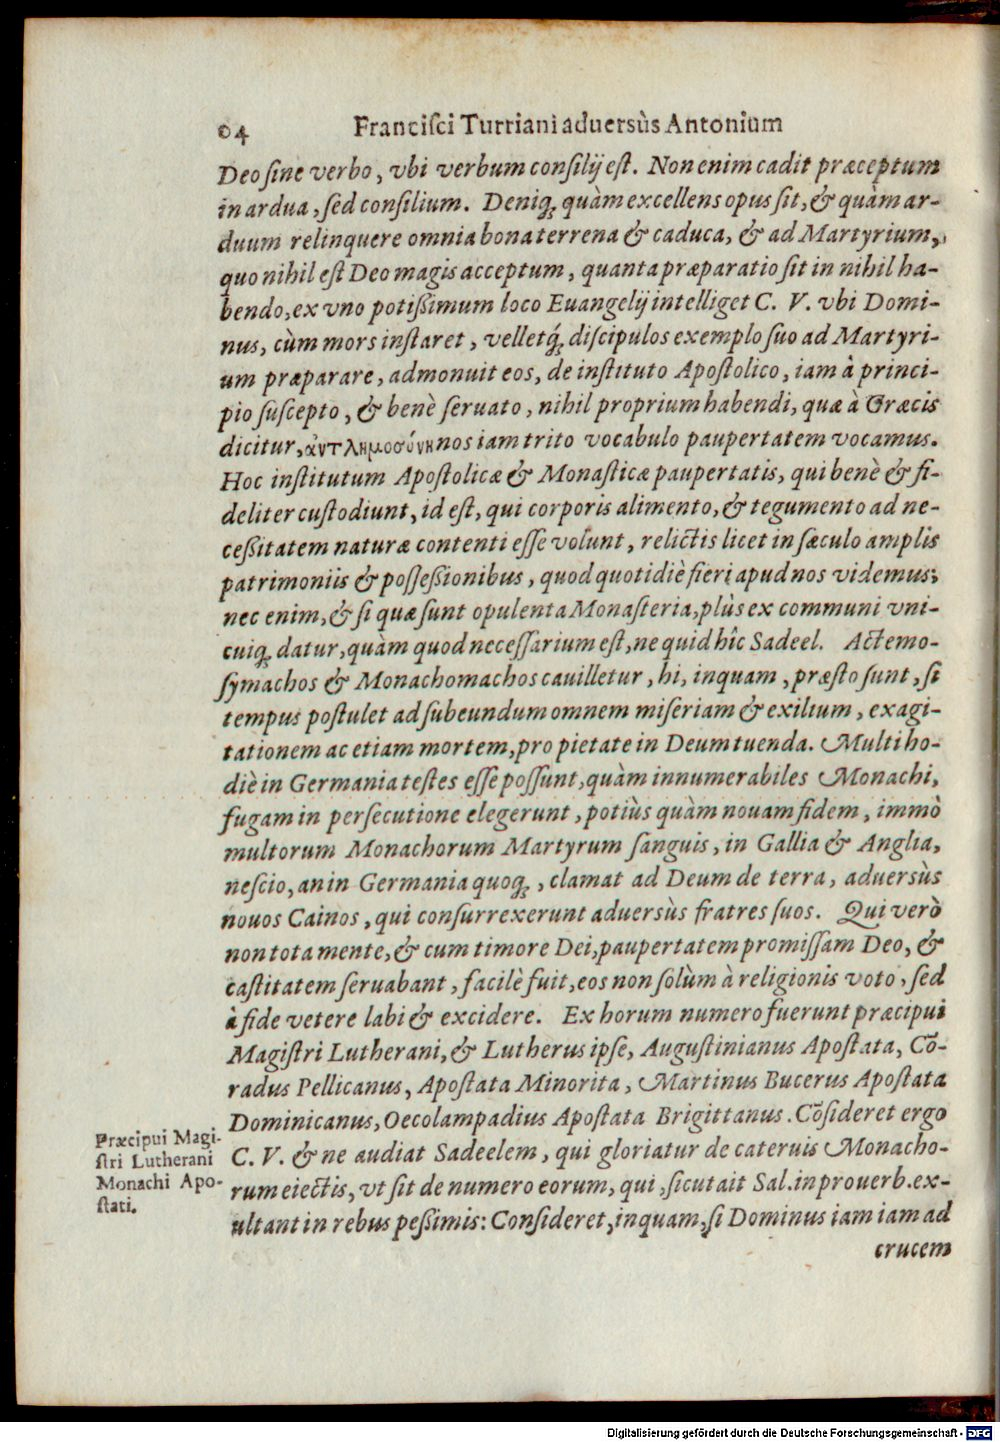 04 Franciſci Turriani aduersùs Antonium
Deo ſine verbo, vbi verbum conſilij eſt. Non enim cadit præceptum
in ardua, ſed conſilium. Deniq; quàm excellens opus ſit, & quàm ar-
duum relinquere omnia bona terrena & caduca, & ad Martyrium,
quo nihil eſt Deo magis acceptum, quanta præparatio ſit in nihil ha-
bendo, ex vno potißimum loco Euangelij intelliget C. V. vbi Domi-
nus, cùm mors inſtaret, velletq́; diſcipulos exemplo ſuo ad Martyri-
um præparare, admonuit eos, de inſtituto Apoſtolico, iam à princi-
pio ſuſcepto, & benè ſeruato, nihil proprium habendi, quæ à Græcis
dicitur, ἀντλημοσύνη nos iam trito vocabulo paupertatem vocamus.
Hoc inſtitutum Apoſtolicæ & Monaſticæ paupertatis, qui benè & fi-
deliter cuſtodiunt, id eſt, qui corporis alimento, & tegumento ad ne-
ceßitatem naturæ contenti eſſe volunt, relictis licet in ſæculo amplis
patrimoniis & poſſeßionibus, quod quotidiè fieri apud nos videmus;
nec enim, & ſi quæ ſunt opulenta Monaſteria, plùs ex communi vni-
cuiq; datur, quàm quod neceſſarium eſt, ne quid hîc Sadeel. Actemo-
ſymachos & Monachomachos cauilletur, hi, inquam, præſto ſunt, ſi
tempus poſtulet ad ſubeundum omnem miſeriam & exilium, exagi-
tationem ac etiam mortem, pro pietate in Deum tuenda. Multi ho-
diè in Germania teſtes eſſe poſſunt, quàm innumerabiles Monachi,
fugam in perſecutione elegerunt, potiùs quàm nouam fidem, immò
multorum Monachorum Martyrum ſanguis, in Gallia & Anglia,
neſcio, an in Germania quoq;, clamat ad Deum de terra, aduersùs
nouos Cainos, qui conſurrexerunt aduersùs fratres ſuos. Qui verò
non tota mente, & cum timore Dei, paupertatem promiſſam Deo, &
caſtitatem ſeruabant, facilè fuit, eos non ſolùm à religionis voto, ſed
à fide vetere labi & excidere. Ex horum numero fuerunt præcipui
Magiſtri Lutherani, & Lutherus ipſe, Auguſtinianus Apoſtata, Cō-
radus Pellicanus, Apoſtata Minorita, Martinus Bucerus Apoſtata
Dominicanus, Oecolampadius Apoſtata Brigittanus. Cōſideret ergo
C. V. & ne audiat Sadeelem, qui gloriatur de cateruis Monacho-
rum eiectis, vt ſit de numero eorum, qui, ſicut ait Sal. in prouerb. ex-
ultant in rebus peßimis: Conſideret, inquam, ſi Dominus iam iam ad
crucem
Præcipui Magi-
ſtri Lutherani
Monachi Apo-
ſtati.
Digitalisierung gefördert durch die Deutsche Forschungsgemeinschaft - DFG